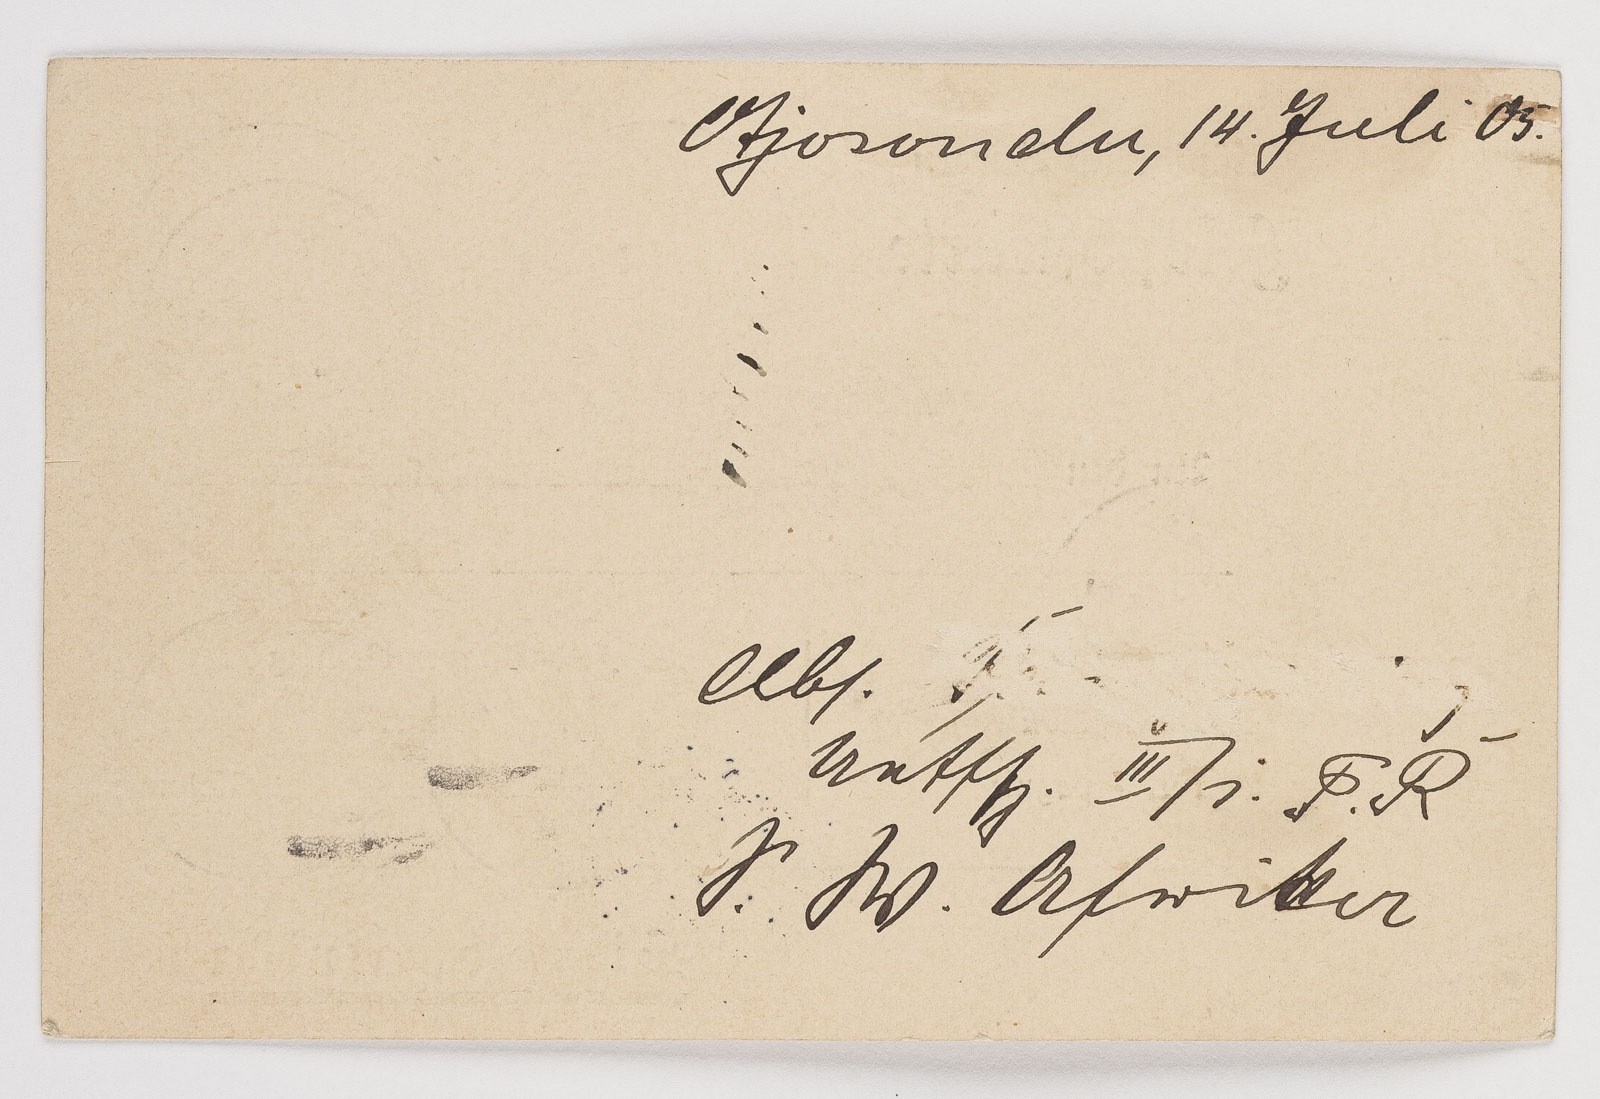 Otjosondu, 14. Juli 05.
Abs.
Untffz. III/i. F.R
S. S.W. Afrika